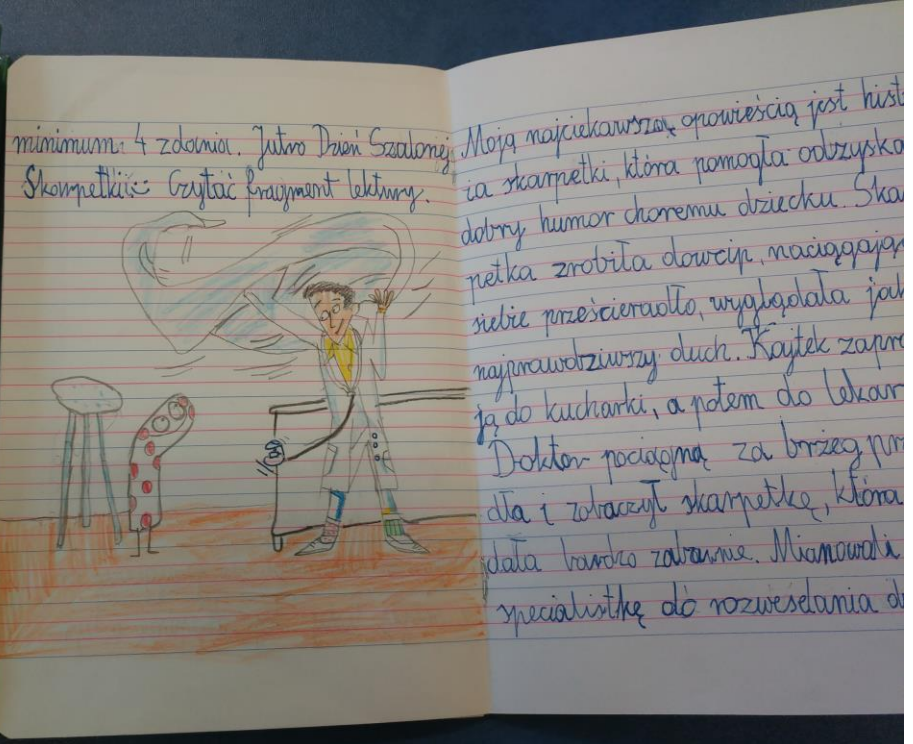 minimum: 4 zdania. Jutro Dzień Szalonej
Skarpetki :) Czytać fragment lektury.
Moją najciekawszą opowieścią jest hist
ia skarpetki, która pomogła odzyska
dobry humor choremu dziecku. Ska
petka zrobiła dowcip, naciągając
siebie prześcieradło, wyglądała jak
najprawdziwszy duch. Kajtek zapro
ją do kucharki, a potem do lekar
Doktor pociągną za brzeg prz
dła i zobaczył skarpetkę, która
dała bardzo zabawnie. Mianowali
specialistkę do rozweselania d